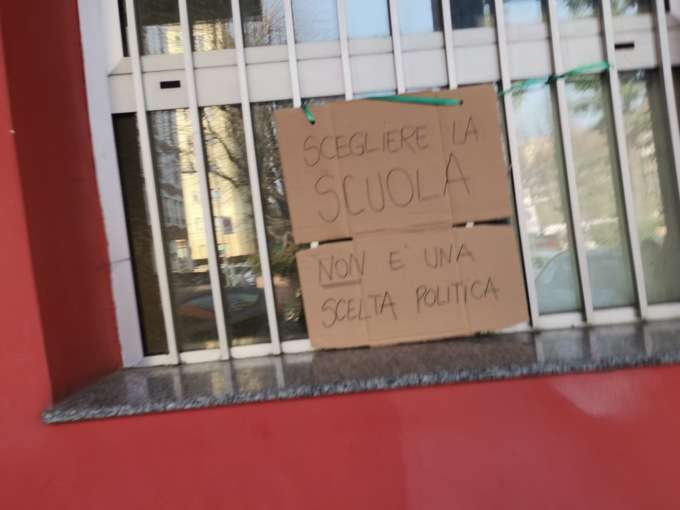 SCEGLIERE LA
SCUOLA
NON E' UNA
SCELTA POLITICA